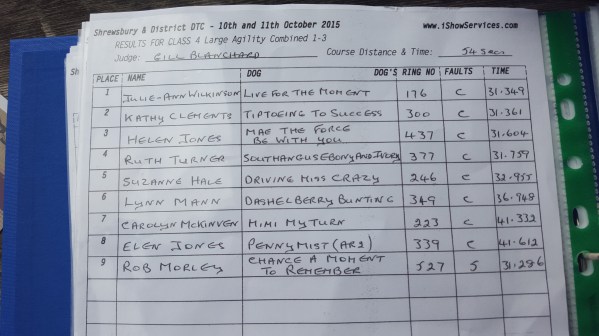 Shrewsbury & District DTC - 10th and 11th October 2015 www.iShowServices.com
RESULTS FOR CLASS 4 Large Agility Combined 1-3
Judge: GILL BLANCHARD Course Distance & Time: 54 Secs
PLACE NAME DOG DOG'S RING NO FAULTS TIME
1 JULIE-ANN WILKINSON LIVE FOR THE MOMENT 176 C 31.349
2 KATHY CLEMENTS TIPTOEING TO SUCCESS 300 C 31.361
3 HELEN JONES MAE THE FORCE BE WITH YOU 437 C 31.604
4 RUTH TURNER SOUTHANGUS EBONY AND IVORY 377 C 31.759
5 SUZANNE HALE DRIVING MISS CRAZY 246 C 32.955
6 LYNN MANN DASHELBERRY BUNTING 349 C 36.948
7 CAROLYN MCKINVEN MIMI MY TURN 223 C 41.332
8 ELEN JONES PENNY MIST (AR2) 339 C 41.612
9 ROB MORLEY CHANCE A MOMENT TO REMEMBER 527 5 31.286